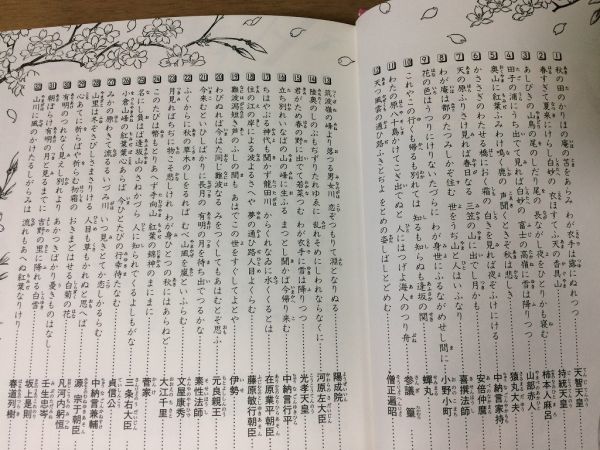 1 秋の田のかりほの庵の苫をあらみ わが衣手は露にぬれつつ 天智天皇
2 春すぎて夏来にけらし白妙の 衣ほすてふ天の香具山 持統天皇
3 あしびきの山鳥の尾のしだり尾の 長ながし夜をひとりかも寝む 柿本人麻呂
4 田子の浦にうち出でて見れば白妙の 富士の高嶺に雪は降りつつ 山部赤人
5 奥山に紅葉ふみわけ鳴く鹿の 声聞くときぞ秋は悲しき 猿丸大夫
6 かささぎのわたせる橋におく霜の 白きを見れば夜ぞふけにける 中納言家持
7 天の原ふりさけ見れば春日なる 三笠の山に出でし月かも 安倍仲麿
8 わが庵は都のたつみしかぞ住む 世をうぢ山と人はいふなり 喜撰法師
9 花の色はうつりにけりないたづらに わが身世にふるながめせし間に 小野小町
10 これやこの行くも帰るも別れては 知るも知らぬも逢坂の関 蟬丸
11 わたの原八十島かけてこぎ出でぬと 人にはつげよ海人のつり舟 参議 篁
12 天つ風雲の通ひ路ふきとぢよ をとめの姿しばしとどめむ 僧正遍昭
13 筑波嶺の峰より落つる男女川 恋ぞつもりて淵となりぬる 陽成院
14 陸奥のしのぶもぢずりたれゆゑに 乱れそめにしわれならなくに 河原左大臣
15 君がため春の野に出でて若菜つむ わが衣手に雪は降りつつ 光孝天皇
16 立ち別れいなばの山の峰に生ふる まつとし聞かば今帰り来む 中納言行平
17 ちはやぶる神代も聞かず龍田川 からくれなゐに水くくるとは 在原業平朝臣
18 住の江の岸による波よるさへや 夢の通ひ路人目よくらむ 藤原敏行朝臣
19 難波潟短き芦のふしの間も あはでこの世をすぐしてよとや 伊勢
20 わびぬれば今はた同じ難波なる みをつくしてもあはむとぞ思ふ 元良親王
21 今来むといひしばかりに長月の 有明の月を待ち出でつるかな 素性法師
22 ふくからに秋の草木のしをるれば むべ山風を嵐といふらむ 文屋康秀
23 月見ればちぢに物こそ悲しけれ わが身ひとつの秋にはあらねど 大江千里
24 このたびは幣もとりあへず手向山 紅葉の錦神のまにまに 菅家
25 名にし負はば逢坂山のさねかづら 人に知られでくるよしもがな 三条右大臣
26 小倉山峰の紅葉葉心あらば 今ひとたびの行幸待たなむ 貞信公
27 みかの原わきて流るるいづみ川 いつ見きとてか恋しかるらむ 中納言兼輔
28 山里は冬ぞさびしさまさりける 人目も草もかれぬと思へば 源 宗于朝臣
29 心あてに折らばや折らむ初霜の おきまどはせる白菊の花 凡河内躬恒
30 有明のつれなく見えし別れより あかつきばかり憂きものはなし 壬生忠岑
31 朝ぼらけ有明の月と見るまでに 吉野の里に降れる白雪 坂上是則
32 山川に風のかけたるしがらみは 流れもあへぬ紅葉なりけり 春道列樹